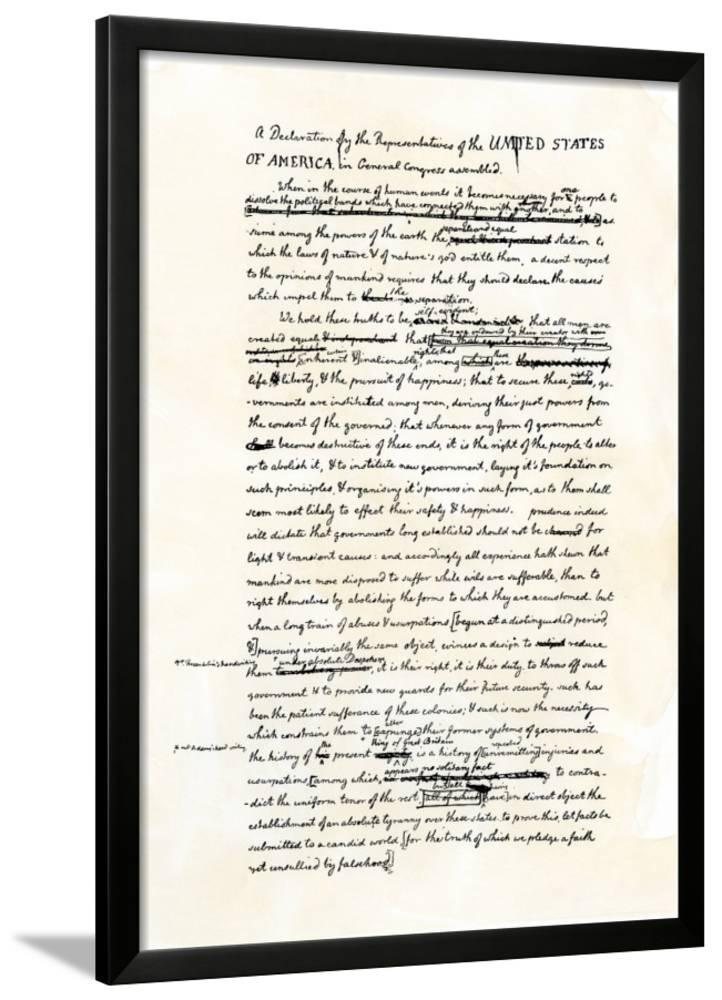 A Declaration by the Representatives of the UNITED STATES
OF AMERICA, in General Congress assembled.
When in the course of human events it becomes necessary for one people to
dissolve the political bands which have connected them with another, and to
as
-sume among the powers of the earth the separate and equal station to
which the laws of nature & of nature's god entitle them, a decent respect
to the opinions of mankind requires that they should declare the causes
which impel them to the separation.
We hold these truths to be self-evident; that all men are
created equal & independent that they are endowed by their creator with
[from that equal creation they derive
inherent & inalienable rights that among which these are
life, & liberty, & the pursuit of happiness; that to secure these rights, go-
-vernments are instituted among men, deriving their just powers from
the consent of the governed; that whenever any form of government
becomes destructive of these ends, it is the right of the people to alter
or to abolish it, & to institute new government, laying it's foundation on
such principles, & organising it's powers in such form, as to them shall
seem most likely to effect their safety & happiness. prudence indeed
will dictate that governments long established should not be changed for
light & transient causes: and accordingly all experience hath shewn that
mankind are more disposed to suffer while evils are sufferable, than to
right themselves by abolishing the forms to which they are accustomed. but
when a long train of abuses & usurpations [begun at a distinguished period,
&] pursuing invariably the same object, evinces a design to reduce
Dr. Franklin's handwriting
them under absolute Despotism, it is their right, it is their duty, to throw off such
government & to provide new guards for their future security. such has
been the patient sufferance of these colonies; & such is now the necessity
which constrains them to [expunge alter their former systems of government.
Mr Adams' handwriting
the history of the present King of Great Britain is a history of [unremitting repeated injuries and
usurpations, [among which, appears no solitary fact to contra-
-dict the uniform tenor of the rest, [all of which] but all have in direct object the
establishment of an absolute tyranny over these states. to prove this, let facts be
submitted to a candid world, [for the truth of which we pledge a faith
yet unsullied by falsehood]